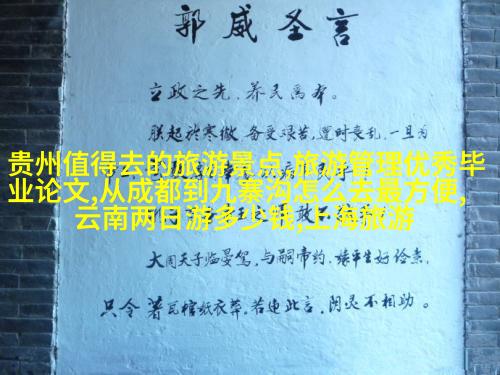 郭威圣言
立政之先，养民为本。
朕起於寒微，备受艰苦，遭时丧乱，一旦为
贵州值得去的旅游景点,旅游管理优秀毕
业论文,从成都到九寨沟怎么去最方便,
云南两日游多少钱,上海旅游
大周天子临晏驾，与嗣帝约，缘平生好俭素，
只令著瓦棺纸衣葬，若违此言，阴灵不相助。